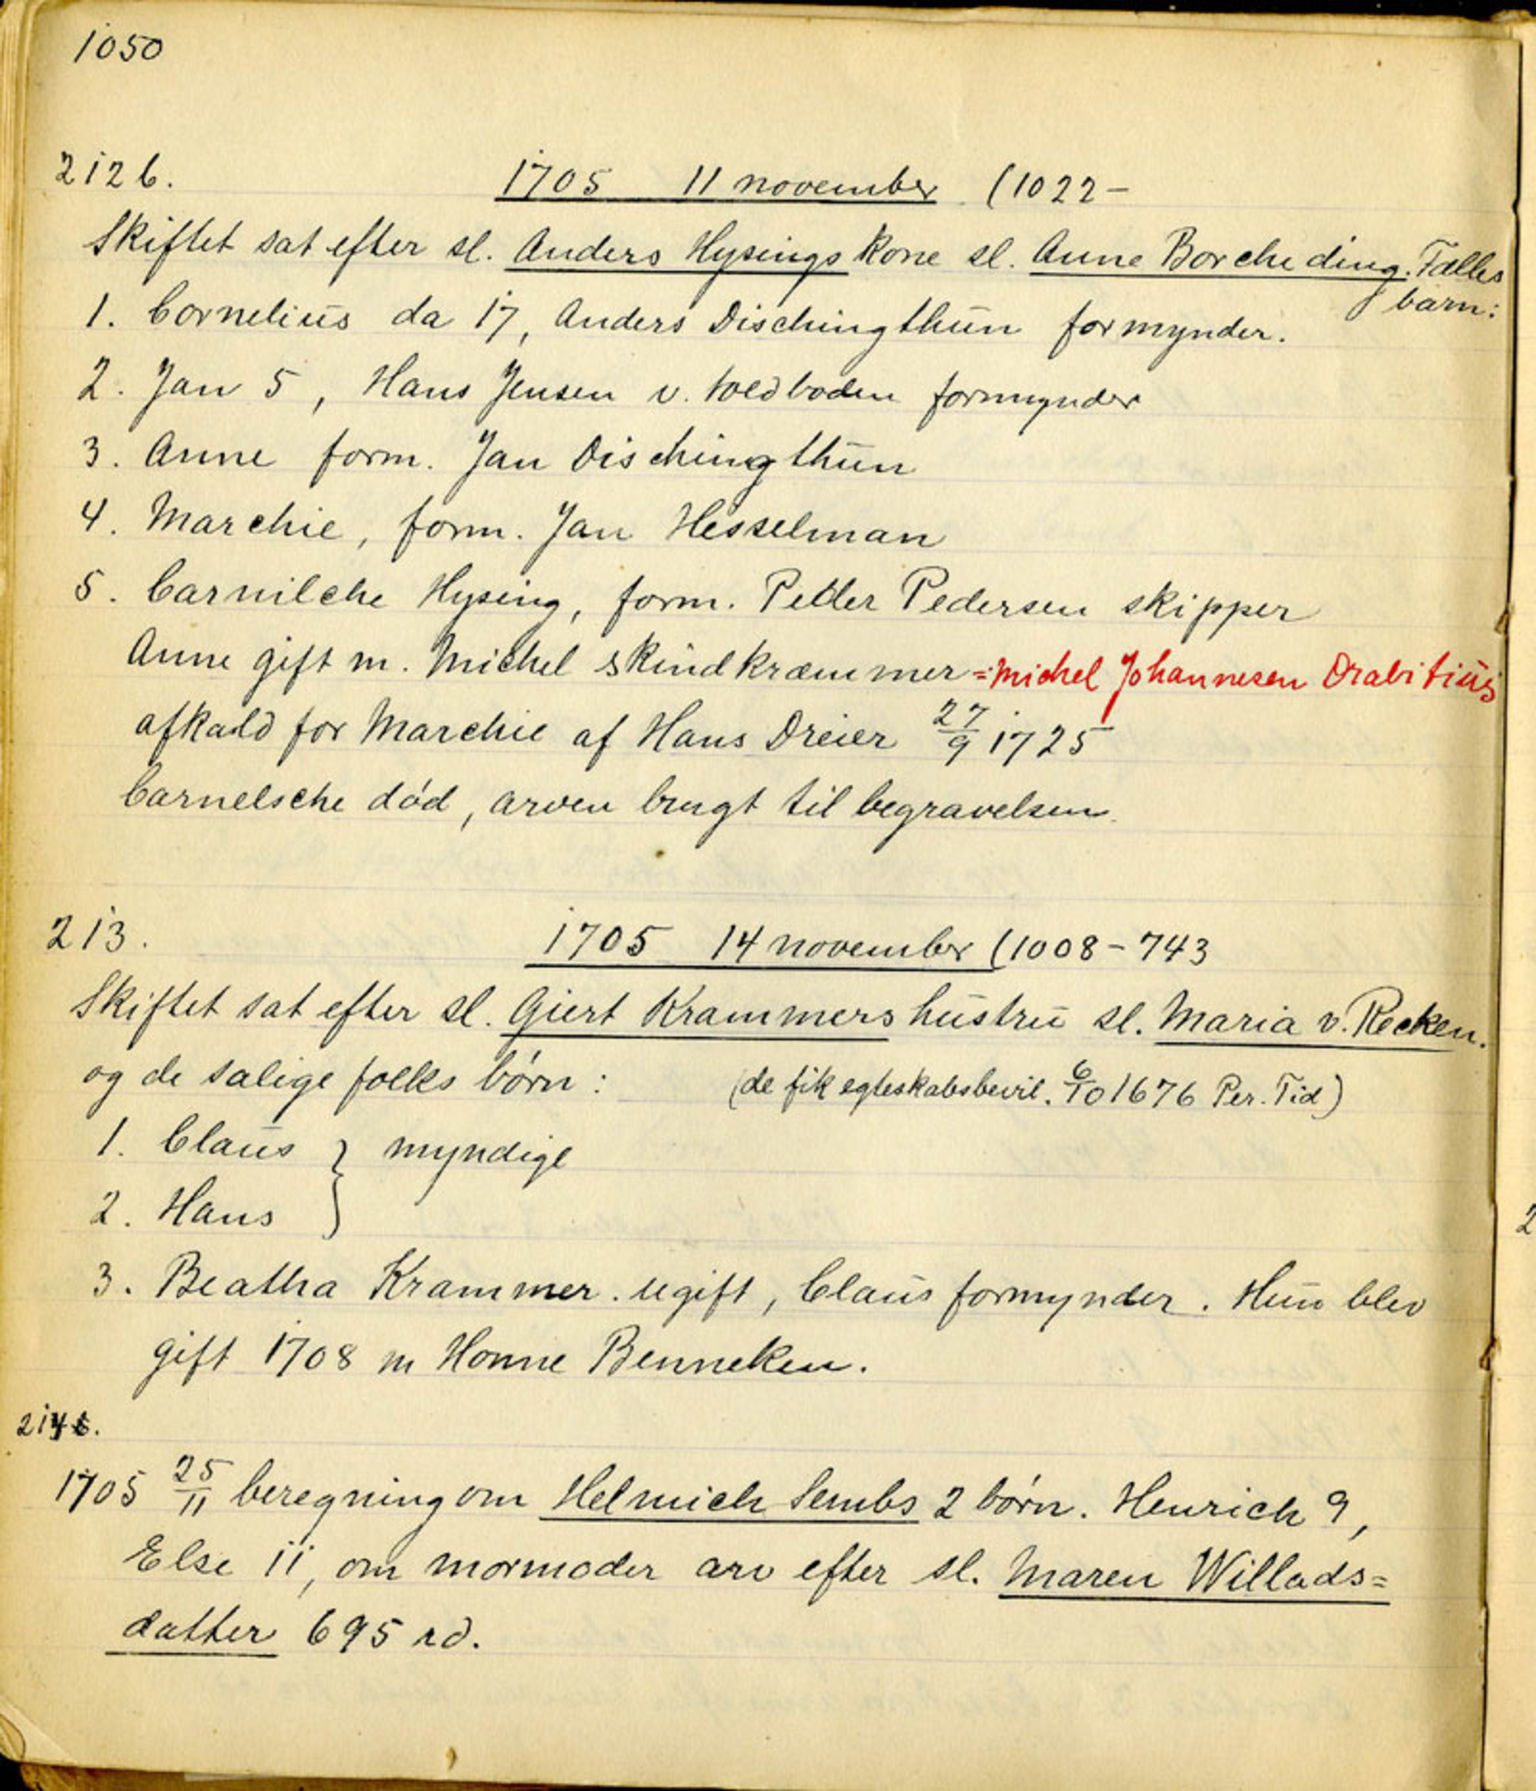 1050
212b. 1705 11 november (1022-
Skiftet sat efter sl. Anders Hysings kone sl. Anne Borcheding. Fælles
børn:
1. Cornelius da 17, Anders Dischingthun formynder.
2. Jan 5, Hans Jensen v. toldboden formynder
3. Anne form. Jan Dischingthun
4. Marchie, form. Jan Hesselman
5. Carnilche Hysing, form. Petter Pedersen skipper
Anne gift m. Michel skindkræmmer =Michel Johannesen Drabitius
afkald for Marchie af Hans Dreier 27/9 1725
Carnelsche død, arven brugt til begravelsen.
213. 1705 14 november (1008-743
Skiftet sat efter sl. Giert Krammers hustru sl. Maria v. Recken.
og de salige folks børn: (de fik egteskabsbevil. 6/10 1676 Per. Tid)
1. Claus } myndige
2. Hans
3. Beatha Krammer. ugift, Claus formynder. Hun blev
gift 1708 m Honne Benneken.
214
1705 25/11 beregning om Helmich Sembs 2 børn. Henrich 9,
Else 11, om mormoder arv efter sl. Maren Willads=
datter 695 rd.
2